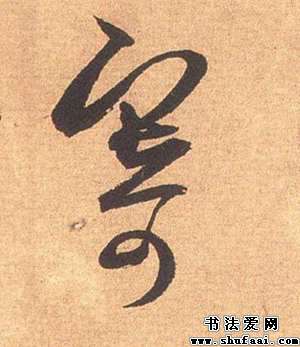 寄
书法爱网
www.shufaai.com